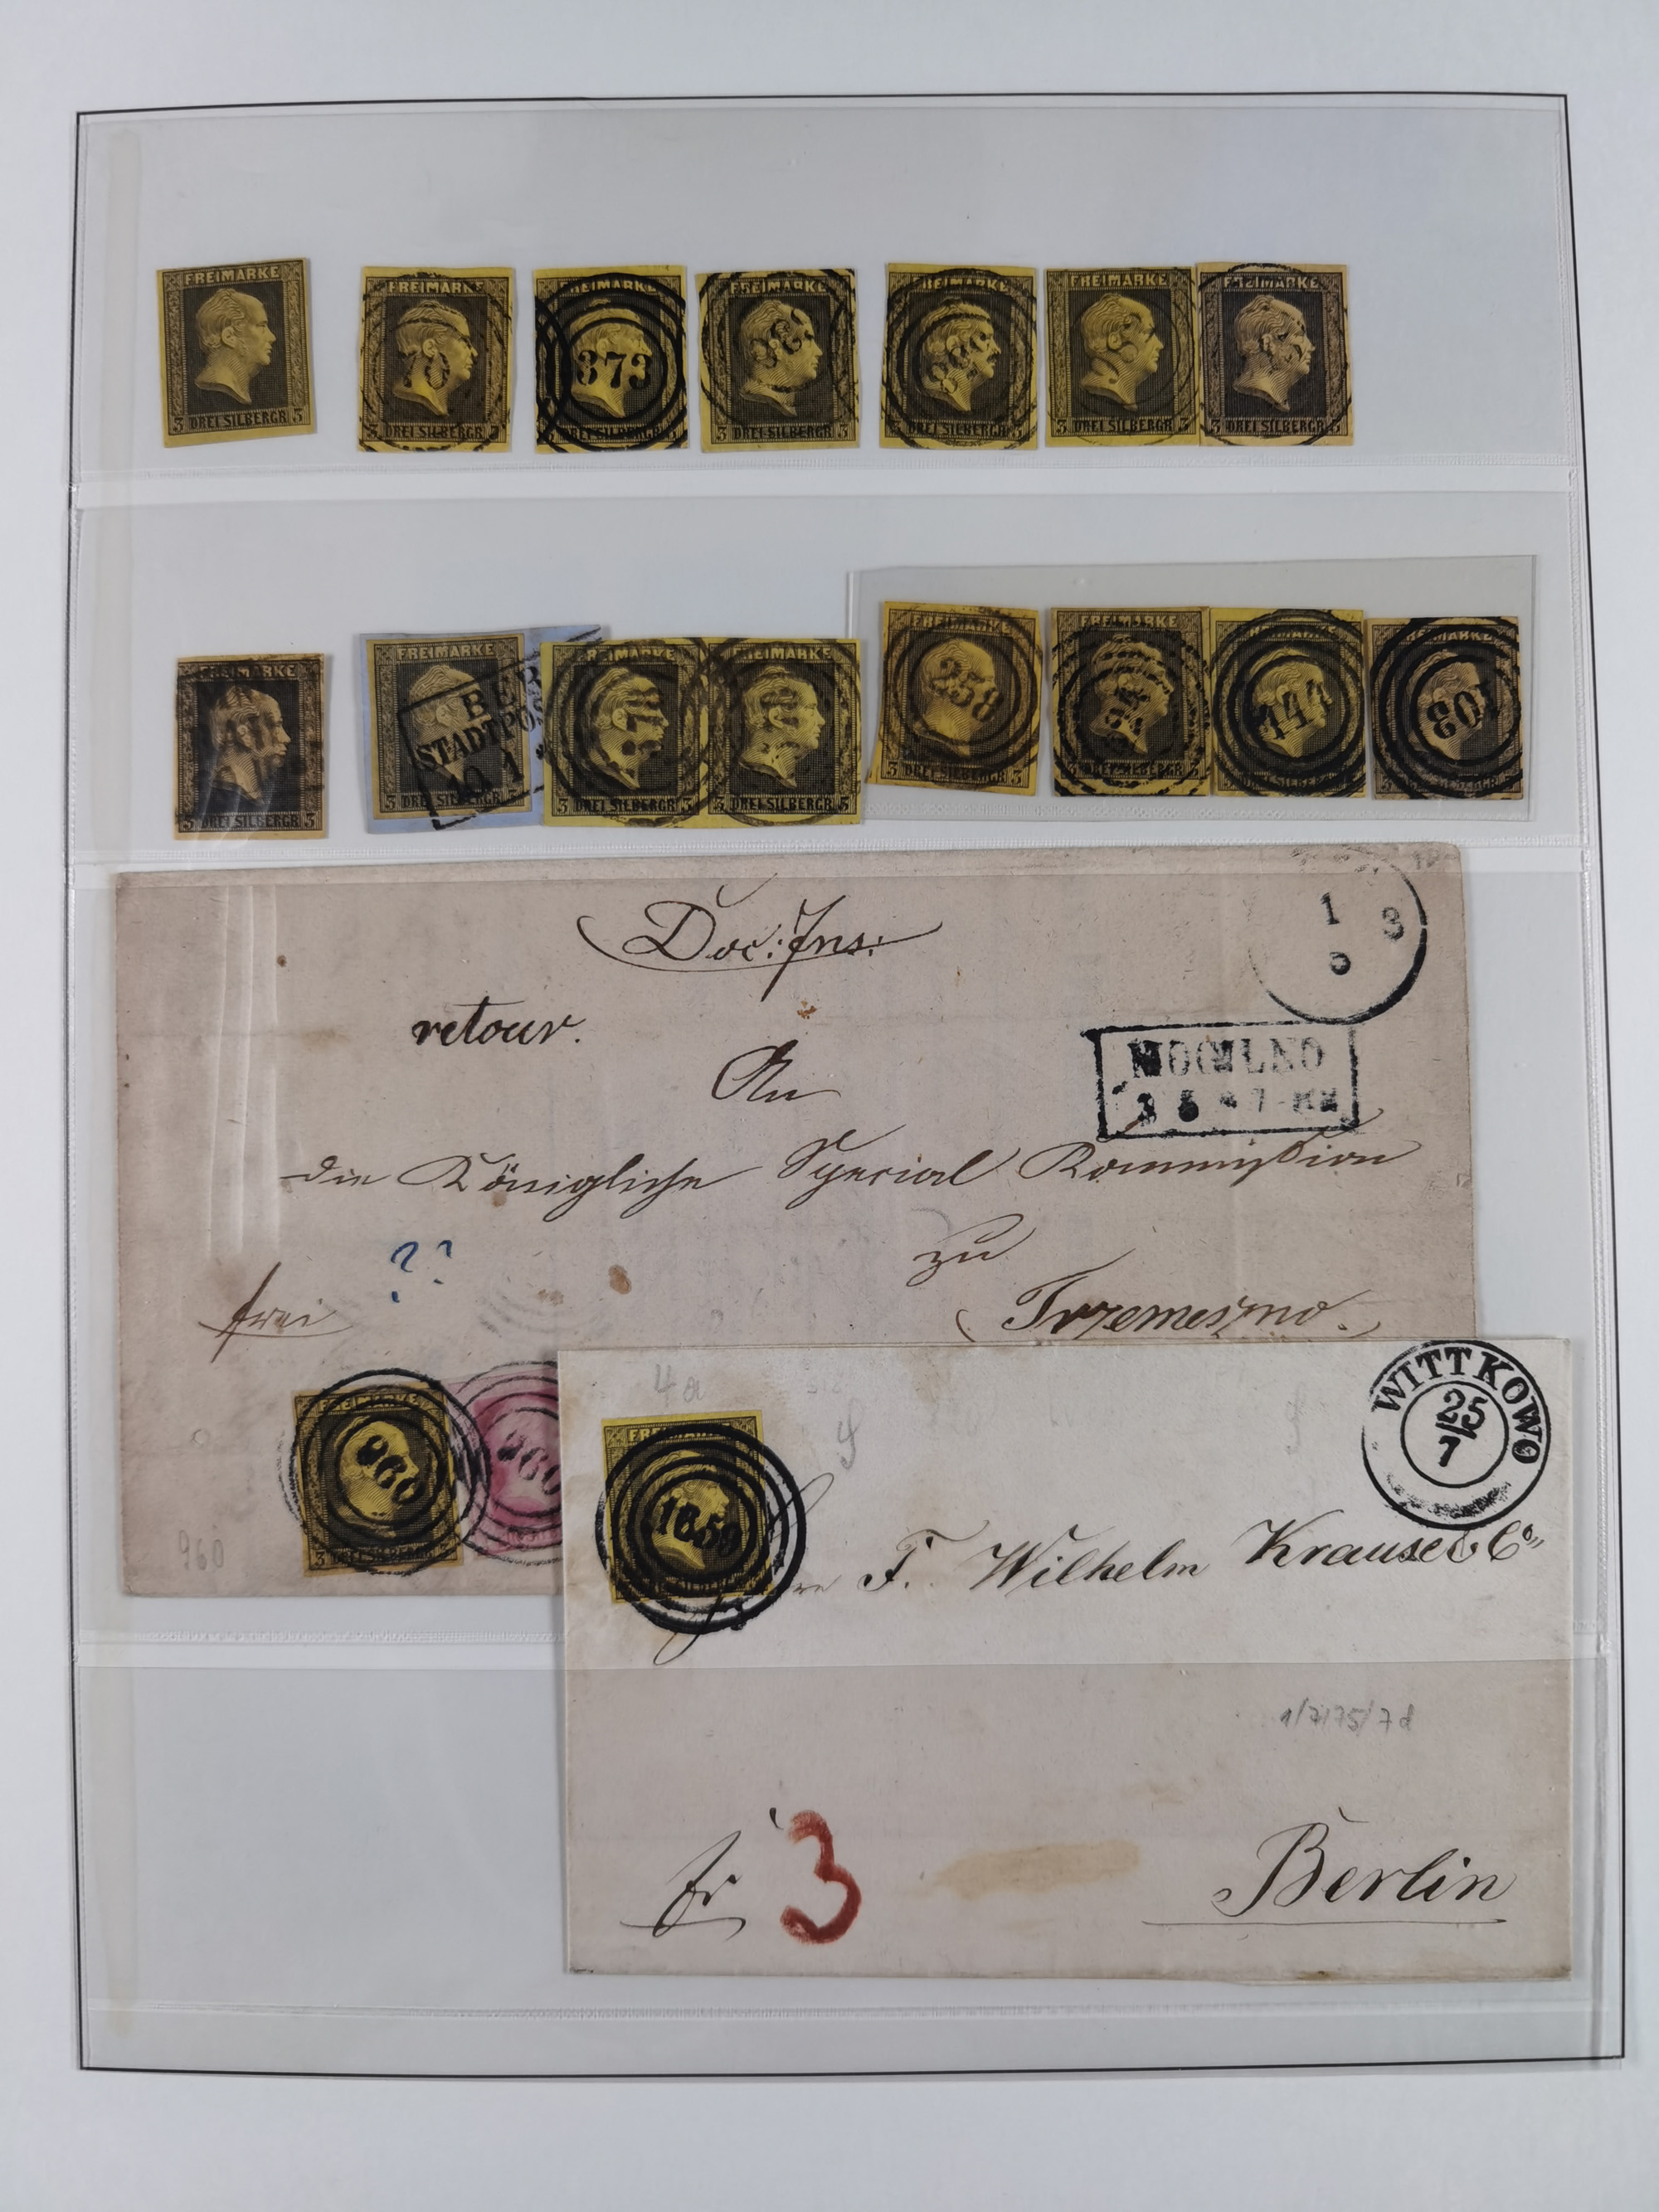 FREIMARKE
3 DREI SILBERGR 3
FREIMARKE
3 DREI SILBERGR 3
FREIMARKE
373
DREI SILBERGR
FREIMARKE
3 DREI SILBERGR 3
FREIMARKE
DREI SILBERGR 3
FREIMARKE
3 DREI SILBERGR 3
FREIMARKE
3 DREI SILBERGR 3
FREIMARKE
3 DREI SILBERGR 3
FREIMARKE
BER
STADTPOS
10 1
3 DREI SILBERGR
FREIMARKE
3 DREI SILBERGR 3
FREIMARKE
3 DREI SILBERGR 3
FREIMARKE
258
3 DREI SILBERGR 3
FREIMARKE
DREI SILBERGR
FREIMARKE
3 DREI SILBERGR
FREIMARKE
103
3 DREI SILBERGR
Doc: Ins:
1 3
5
retour.
MOGILNO
An
die Königliche Special Kommission
zu
??
frei
Trzemeszno.
FREIMARKE
960
3 DREI SILBERGR
960
960
4a
FREIMARKE
1659
WITTKOWO
25
7
F. Wilhelm Krause & Co
1/7175/7d
fr 3
Berlin